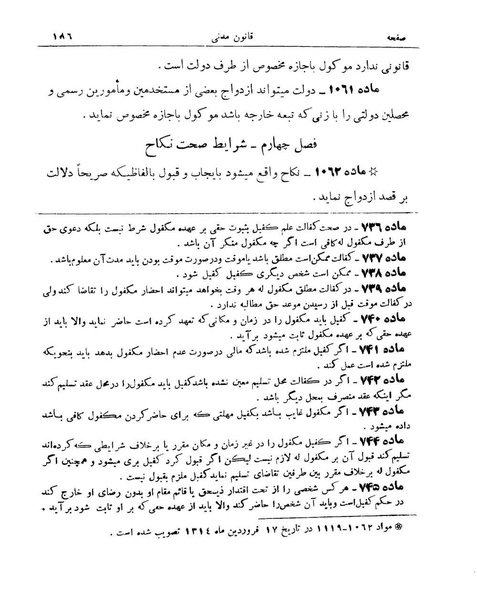 صفحه قانون مدنی ۱۸۶
قانونی ندارد موکول باجازه مخصوص از طرف دولت است .
ماده ۱۰۶۱ ـ دولت میتواند ازدواج بعضی از مستخدمین ومأمورین رسمی و
محصلین دولتی را با زنی که تبعه خارجه باشد موکول باجازه مخصوص نماید .
فصل چهارم ـ شرایط صحت نکاح
☆ ماده ۱۰۶۲ ـ نکاح واقع میشود بایجاب و قبول بالفاظیکه صریحاً دلالت
بر قصد ازدواج نماید .
ماده ۷۳۶ ـ در صحت کفالت علم کفیل بثبوت حقی بر عهده مکفول شرط نیست بلکه دعوی حق
از طرف مکفول له کافی است اگر چه مکفول منکر آن باشد .
ماده ۷۳۷ ـ کفالت ممکن است مطلق باشد یا موقت ودرصورت موقت بودن باید مدت آن معلوم باشد .
ماده ۷۳۸ ـ ممکن است شخص دیگری کفیل کفیل شود .
ماده ۷۳۹ ـ در کفالت مطلق مکفول له هر وقت بخواهد میتواند احضار مکفول را تقاضا کند ولی
در کفالت موقت قبل از رسیدن موعد حق مطالبه ندارد .
ماده ۷۴۰ ـ کفیل باید مکفول را در زمان و مکانی که تعهد کرده است حاضر نماید والا باید از
عهده حقی که بر عهده مکفول ثابت میشود بر آید .
ماده ۷۴۱ ـ اگر کفیل ملتزم شده باشد که مالی درصورت عدم احضار مکفول بدهد باید بنحویکه
ملتزم شده است عمل کند .
ماده ۷۴۲ ـ اگر در کفالت محل تسلیم معین نشده باشد کفیل باید مکفول را درمحل عقد تسلیم کند
مگر اینکه عقد منصرف بمحل دیگر باشد .
ماده ۷۴۳ ـ اگر مکفول غایب باشد بکفیل مهلتی که برای حاضر کردن مکفول کافی باشد
داده میشود .
ماده ۷۴۴ ـ اگر کفیل مکفول را در غیر زمان و مکان مقرر یا بر خلاف شرایطی که کرده اند
تسلیم کند قبول آن بر مکفول له لازم نیست لیکن اگر قبول کرد کفیل بری میشود و همچنین اگر
مکفول له برخلاف مقرر بین طرفین تقاضای تسلیم نماید کفیل ملزم بقبول نیست .
ماده ۷۴۵ ـ هر کس شخصی را از تحت اقتدار ذیحق یا قائم مقام او بدون رضای او خارج کند
در حکم کفیل است وباید آن شخص را حاضر کند والا باید از عهده حقی که بر او ثابت شود بر آید .
☆ مواد ۱۰۶۲-۱۱۱۹ در تاریخ ۱۷ فروردین ماه ۱۳۱۴ تصویب شده است .